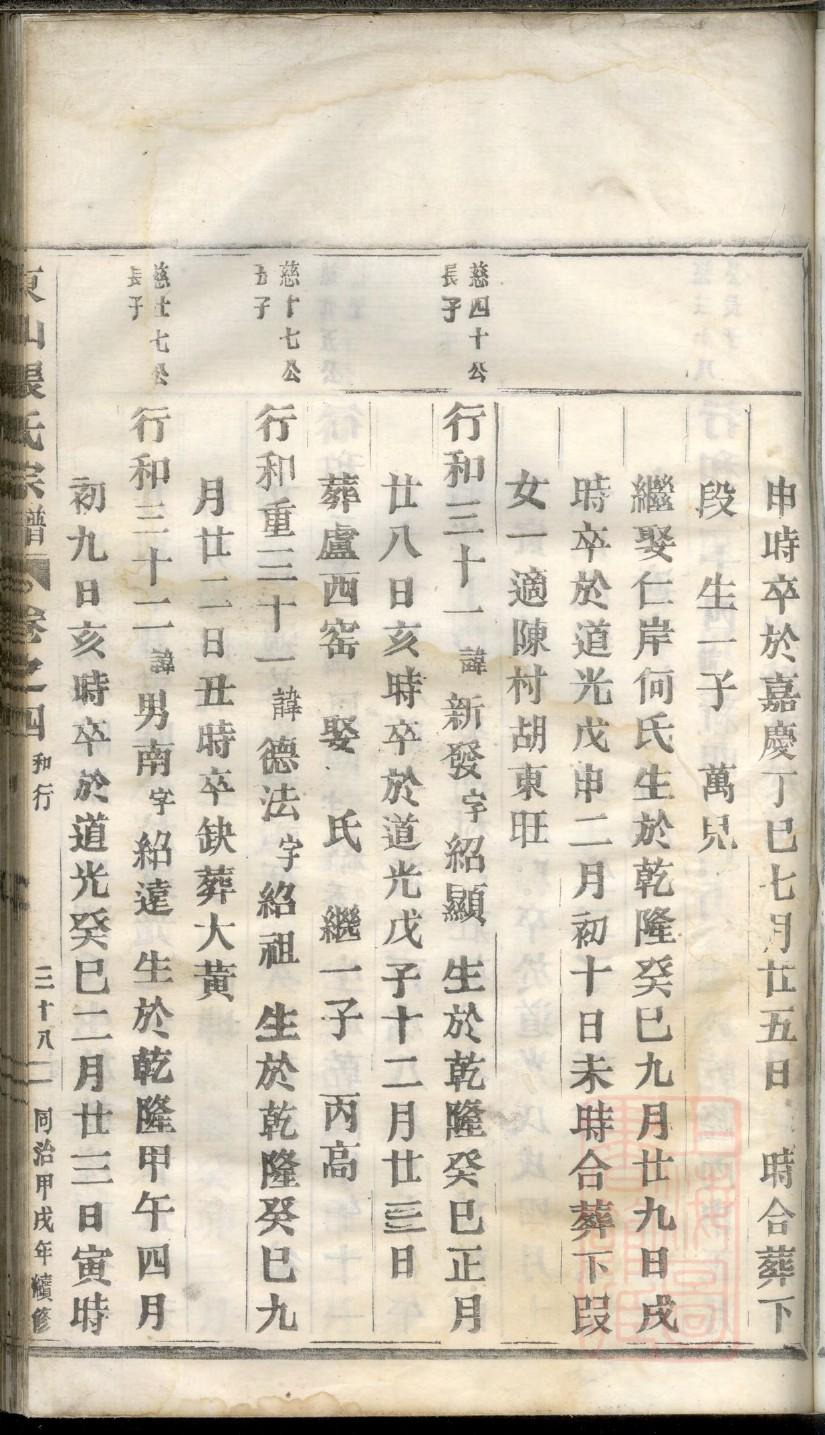 申時卒於嘉慶丁巳七月廿五日 時合葬下
段 生一子 萬兒
繼娶仁岸何氏生於乾隆癸巳九月廿九日戌
時卒於道光戊申二月初十日未時合葬下段
女一適陳村胡東旺
慈四十公
長子
行和三十一諱新發字紹顯 生於乾隆癸巳正月
廿八日亥時卒於道光戊子十二月廿三日
葬盧西窑 娶 氏 繼一子 丙高
慈十七公
五子
行和重三十一諱德法字紹祖 生於乾隆癸巳九
月廿二日丑時卒缺葬大黃
慈廿七公
長子
行和三十二諱男南字紹遠 生於乾隆甲午四月
初九日亥時卒於道光癸巳二月廿三日寅時
東山張氏宗譜 卷之四 和行 三十八 同治甲戌年續修